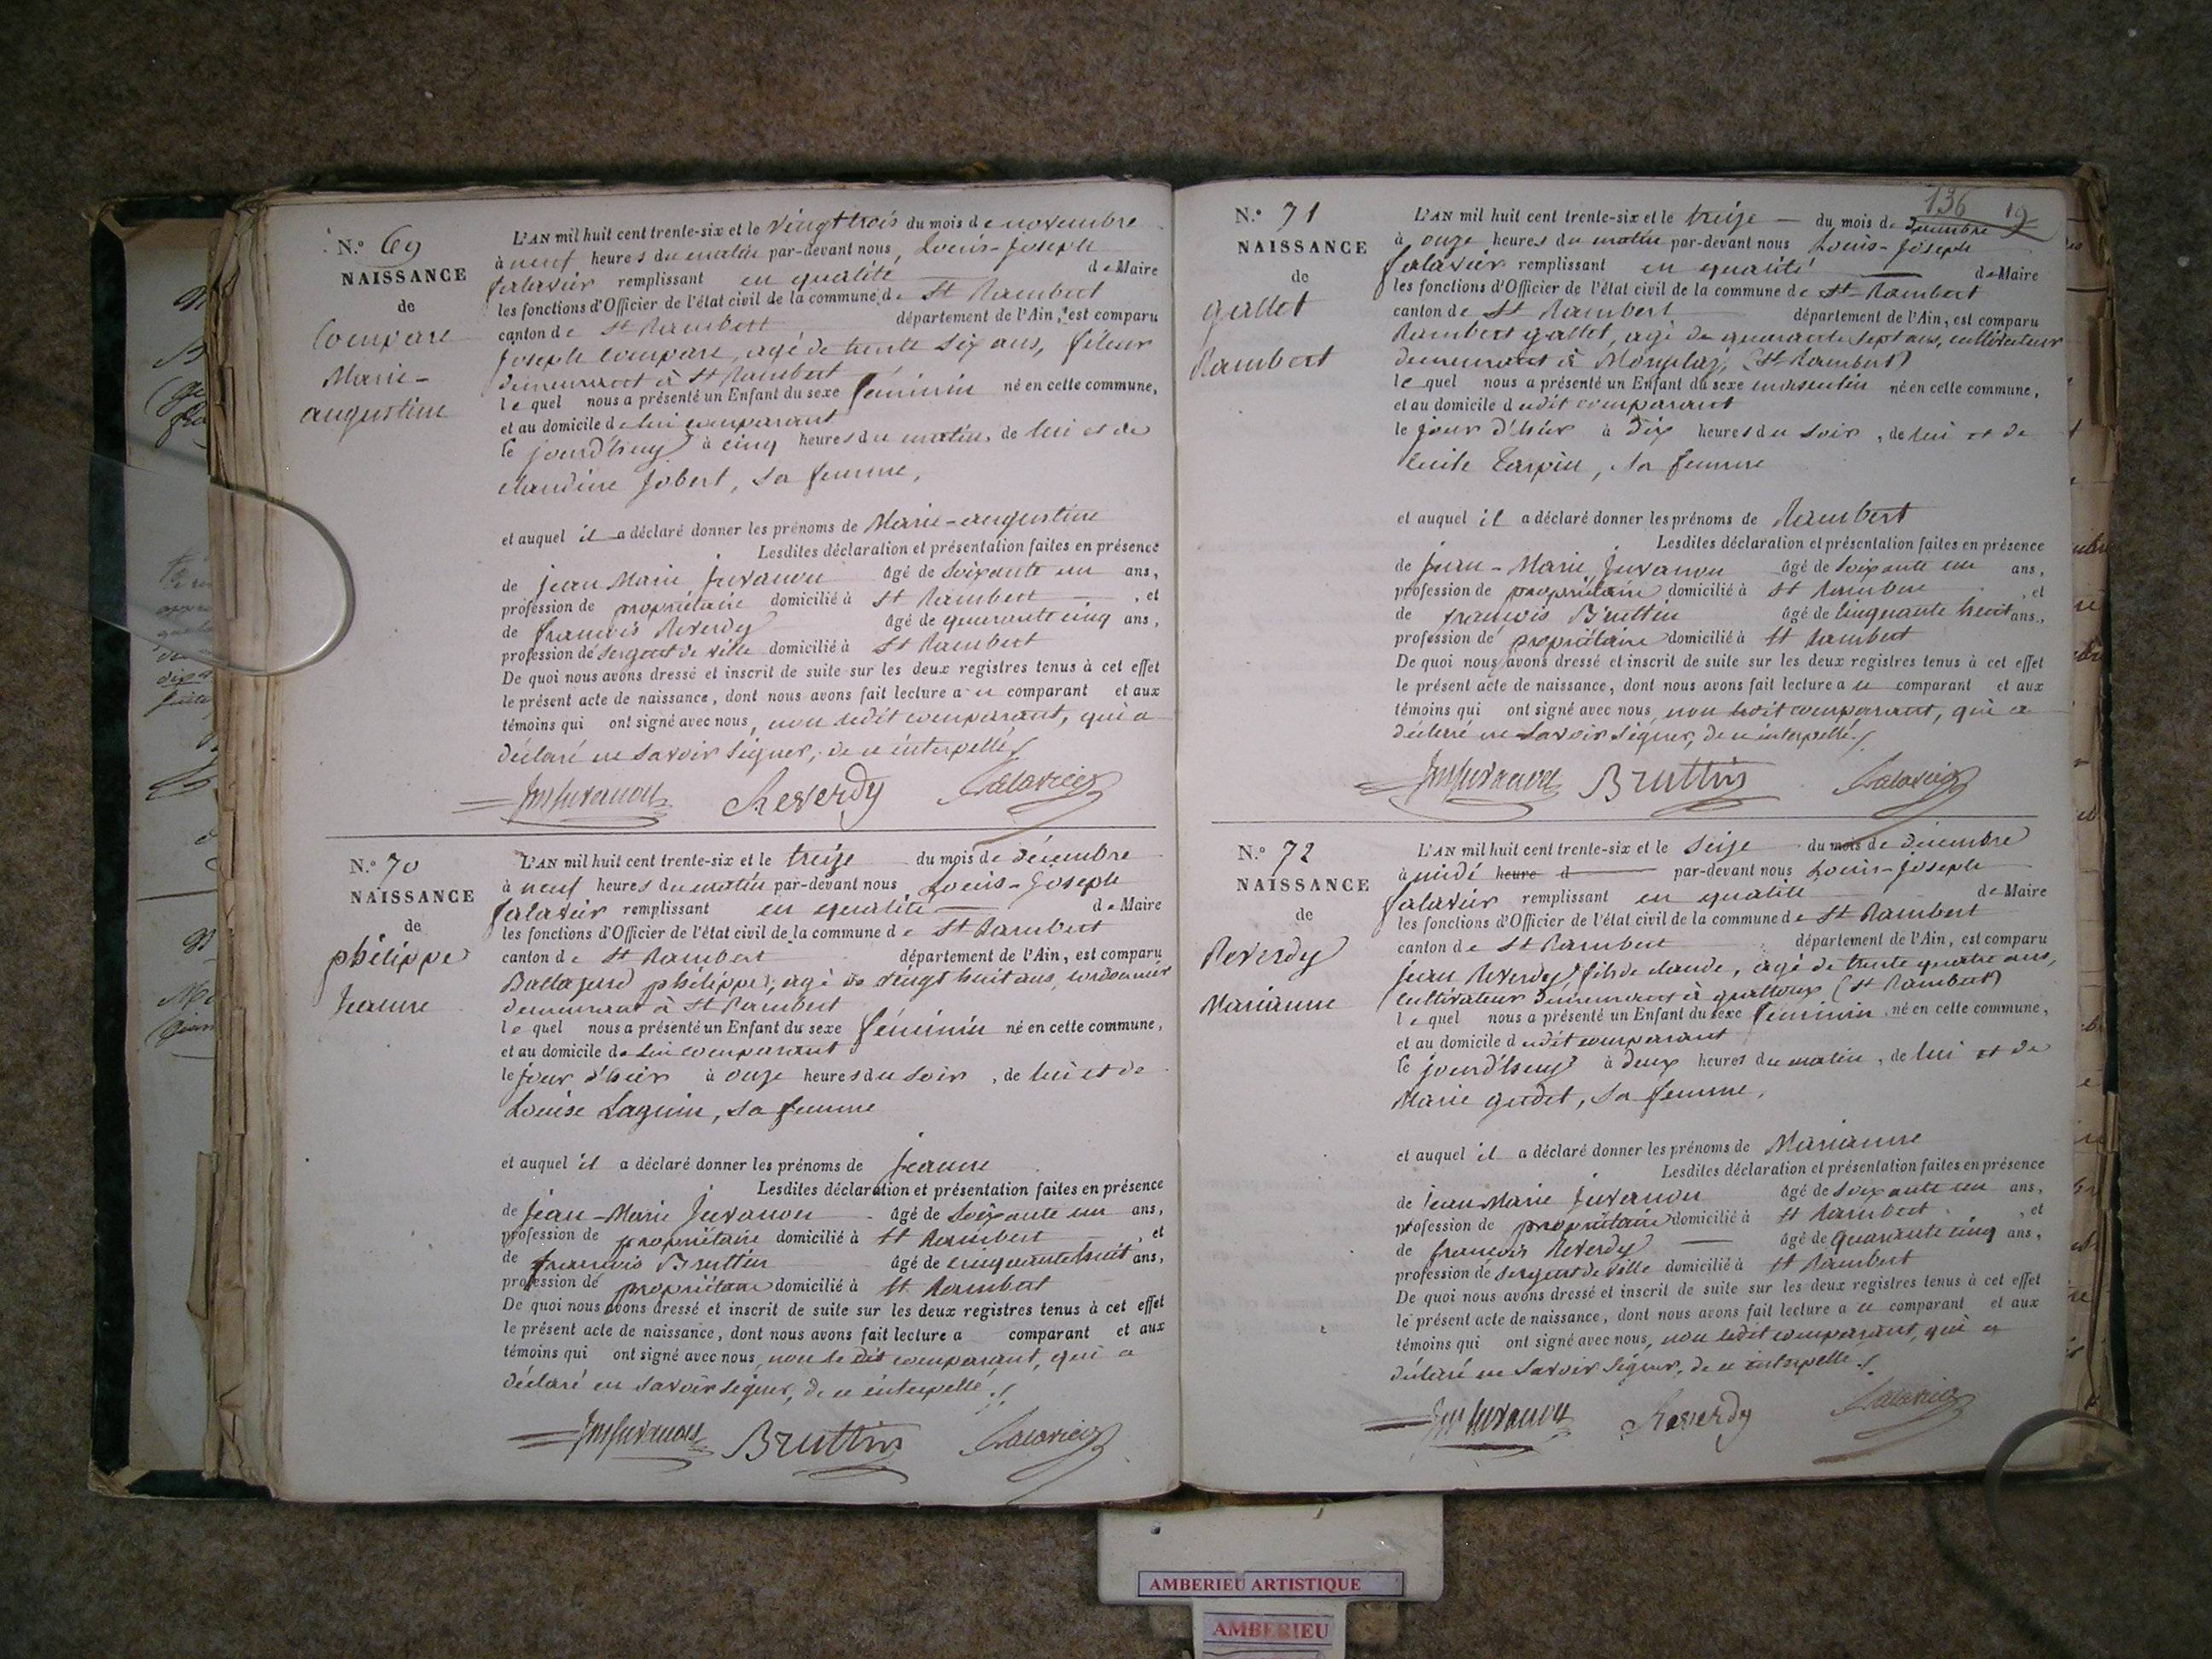 N.° 69
NAISSANCE
de
Compare
Marie-
augustine
L'AN mil huit cent trente-six et le vingt trois du mois de novembre
à neuf heures du matin par-devant nous, Louis-Joseph
falavier remplissant en qualité de Maire
les fonctions d'Officier de l'état civil de la commune de St Rambert
canton de St Rambert département de l'Ain, est comparu
Joseph Compare, agé de trente six ans, fileur
demeurant à St Rambert
lequel nous a présenté un Enfant du sexe féminin né en cette commune,
et au domicile de lui comparant
le jourd'huy à cinq heures du matin, de lui et de
claudine Jobert, sa femme,
et auquel il a déclaré donner les prénoms de Marie-augustine
Lesdites déclaration et présentation faites en présence
de jean Marie Juvanon âgé de Soixante un ans,
profession de propriétaire domicilié à St Rambert, et
de françois Reverdy âgé de quarante cinq ans,
profession de Sergent de ville domicilié à St Rambert
De quoi nous avons dressé et inscrit de suite sur les deux registres tenus à cet effet
le présent acte de naissance, dont nous avons fait lecture a ce comparant et aux
témoins qui ont signé avec nous, non ledit comparant, qui a
déclaré ne savoir signer, de ce interpellé
Reverdy
N.° 70
NAISSANCE
de
philippe
Jeanne
L'AN mil huit cent trente-six et le treize du mois de décembre
à neuf heures du matin par-devant nous Louis-Joseph
falavier remplissant en qualité de Maire
les fonctions d'Officier de l'état civil de la commune de St Rambert
canton de St Rambert département de l'Ain, est comparu
Baltazard philippe, agé de vingt huit ans, cordonnier
demeurant à St Rambert
lequel nous a présenté un Enfant du sexe féminin né en cette commune,
et au domicile de lui comparant
le jour d'hier à onze heures du soir, de lui et de
Louise Laguin, sa femme
et auquel il a déclaré donner les prénoms de Jeanne
Lesdites déclaration et présentation faites en présence
de jean-Marie Juvanon âgé de Soixante un ans,
profession de propriétaire domicilié à St Rambert, et
de françois Bruttin âgé de cinquante huit ans,
profession de propriétaire domicilié à St Rambert
De quoi nous avons dressé et inscrit de suite sur les deux registres tenus à cet effet
le présent acte de naissance, dont nous avons fait lecture a comparant et aux
témoins qui ont signé avec nous, non le dit comparant, qui a
déclaré ne savoir signer, de ce interpellé
Bruttin
136
19
N.° 71
NAISSANCE
de
gallet
Rambert
L'AN mil huit cent trente-six et le treize du mois de décembre
à onze heures du matin par-devant nous Louis-Joseph
falavier remplissant en qualité de Maire
les fonctions d'Officier de l'état civil de la commune de St Rambert
canton de St Rambert département de l'Ain, est comparu
Rambert gallet, agé de quarante sept ans, cultivateur
demeurant à (St Rambert)
lequel nous a présenté un Enfant du sexe masculin né en cette commune,
et au domicile dudit comparant
le jour d'hier à dix heures du soir, de lui et de
Tarpin, sa femme
et auquel il a déclaré donner les prénoms de Rambert
Lesdites déclaration et présentation faites en présence
de jean-Marie Juvanon âgé de Soixante un ans,
profession de propriétaire domicilié à St Rambert, et
de françois Bruttin âgé de Cinquante huit ans,
profession de propriétaire domicilié à St Rambert
De quoi nous avons dressé et inscrit de suite sur les deux registres tenus à cet effet
le présent acte de naissance, dont nous avons fait lecture a ce comparant et aux
témoins qui ont signé avec nous, non ledit comparant, qui a
déclaré ne savoir signer, de ce interpellé
Bruttin
N.° 72
NAISSANCE
de
Reverdy
Marianne
L'AN mil huit cent trente-six et le Seize du mois de décembre
à midi heure d par-devant nous Louis-Joseph
falavier remplissant en qualité de Maire
les fonctions d'Officier de l'état civil de la commune de St Rambert
canton de St Rambert département de l'Ain, est comparu
Jean Reverdy, fils de claude, agé de trente quatre ans,
Cultivateur demeurant à (St Rambert)
lequel nous a présenté un Enfant du sexe féminin né en cette commune,
et au domicile dudit comparant
le jourd'huy à deux heures du matin, de lui et de
Marie gudet, sa femme,
et auquel il a déclaré donner les prénoms de Marianne
Lesdites déclaration et présentation faites en présence
de jean Marie Juvanon âgé de Soixante un ans,
profession de propriétaire domicilié à St Rambert, et
de françois Reverdy âgé de quarante cinq ans,
profession de Sergent de ville domicilié à St Rambert
De quoi nous avons dressé et inscrit de suite sur les deux registres tenus à cet effet
le présent acte de naissance, dont nous avons fait lecture a ce comparant et aux
témoins qui ont signé avec nous, non ledit comparant, qui a
déclaré ne savoir signer, de ce interpellé
Reverdy
AMBERIEU ARTISTIQUE
AMBERIEU